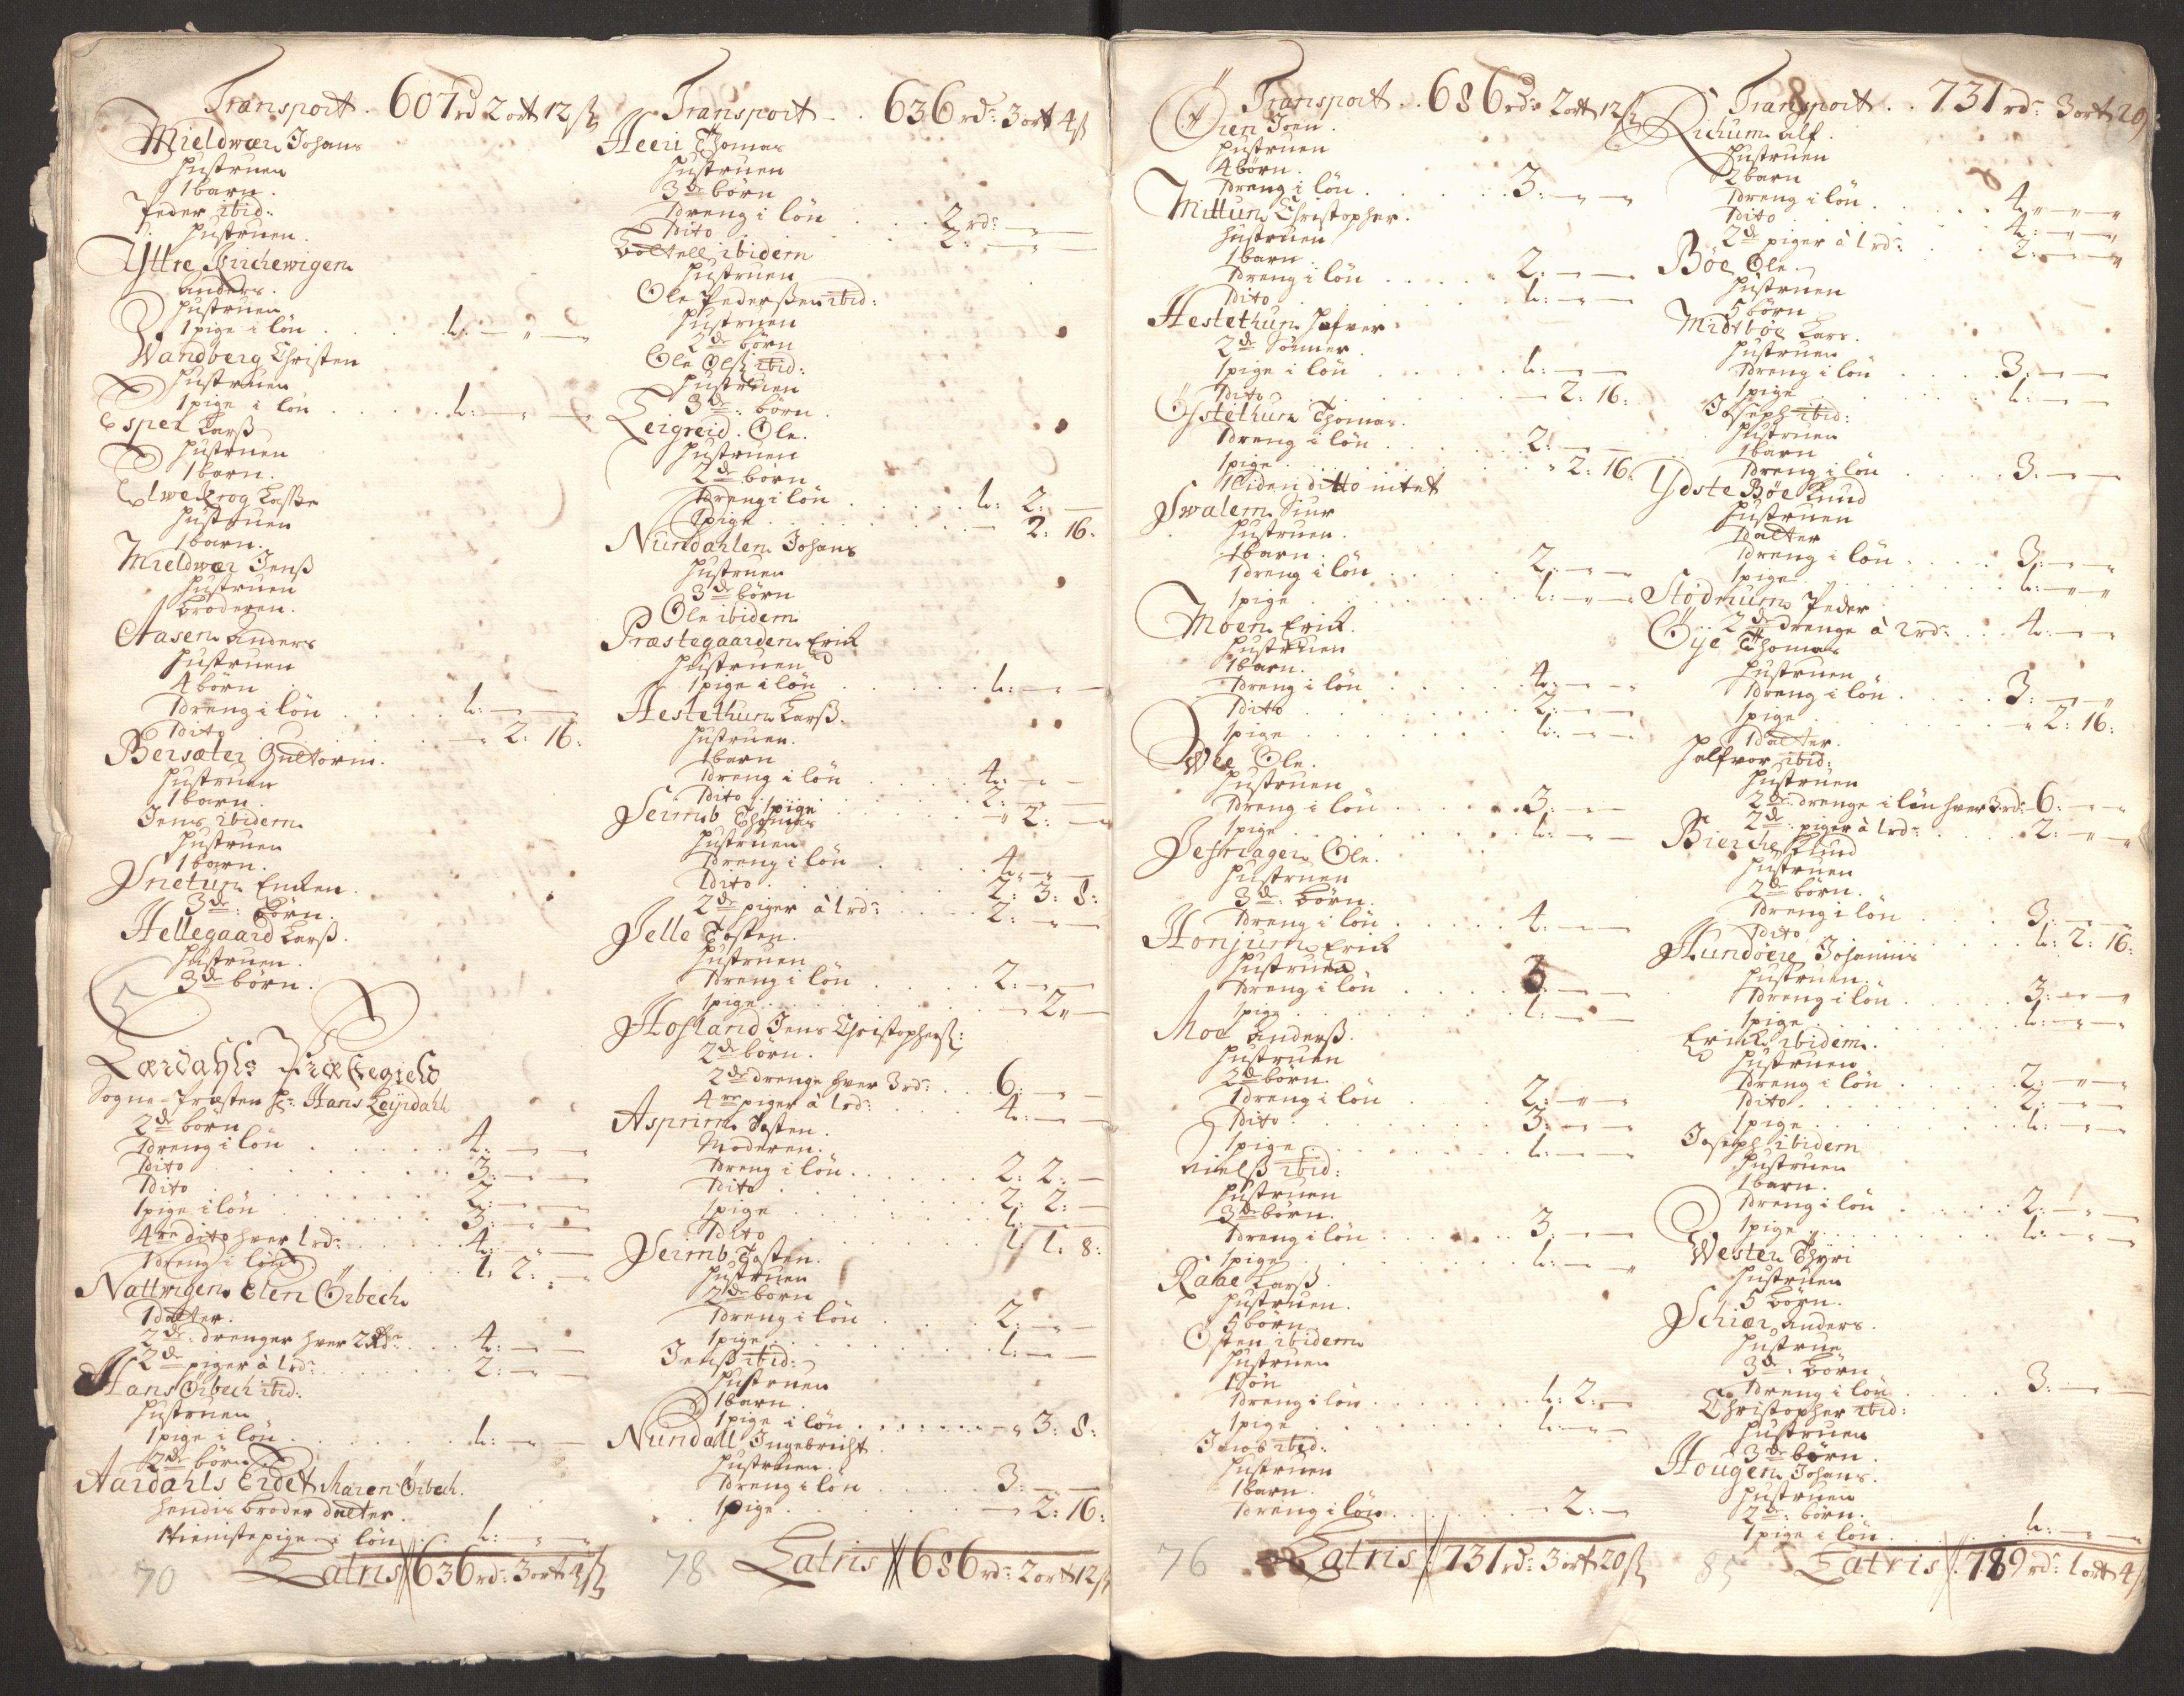 Transport . 607 rd 2 ort 12 ß
Mieldwær Johans
hustruen
1 barn .
Peder ibid:
hustruen .
Yttre Birchewigen
anders .
hustruen
1 pige i lön . . . . 1: — " —
Wandberg Christen
hustruen
1 pige i lön . . . . 1: — " —
Espel Larß
hustruen
1 barn .
Elwekrog Laße
hustruen
1 barn .
Mieldwær Jenß
hustruen
broderen .
Aasen anders
hustruen
4 börn
1 dreng i lön . . . . 1: — " —
1 dito . . . . — " 2: 16:
Bersæter Guttorm .
hustruen
1 barn .
Jens ibidem
hustruen
1 barn .
Snetun Encken .
3de: börn .
Hellegaard Larß .
hustruen .
3de börn .
Lærdahls Præstegield
Sogne-Præsten Hr: Hans Leijrdahl
2de börn
1 dreng i lön . . . . 4: — " —
1 dito . . . . 3: — " —
1 dito . . . . 2: — " —
1 pige i lön . . . . 3: — " —
4re dito hver 1 rd: . . 4: — " —
1 dreng i lön . . . . 1: 2: —
Nattwigen Elen Örbech
1 datter .
2de: drenger hver 2 rd: . . 4: — " —
2de piger à 1 rd: . . . 2: — " —
Hans Örbech ibid:
hustruen
1 pige i lön . . . . 1: — " —
2de börn
Aardahls Eidet Maren Örbech .
hendis broder datter .
1 tienistepige i lön . . 1: — " —
Latris 636 rd: 3 ort 4 ß
70
Transport . . 636 rd: 3 ort 4 ß
Heeri Thomas
hustruen
3de börn
1 dreng i lön . . . . 2 rd: — —
1 dito . . . . 2: — " —
Böltell ibidem
hustruen
Ole Pederßen ibid:
hustruen
2de börn
Ole Olß: ibid:
hustruen
3de: börn .
Leigreid . Ole .
hustruen
2de börn
1 dreng i lön . . . . 1: 2: —
1 pige . . . . — 2: 16:
Nundahlen Johans
hustruen
3de börn
Ole ibidem
Præstegaarden Erick
hustruen
1 pige i lön . . . . 1: — " —
Hestethun Larß .
hustruen .
1 barn
1 dreng i lön . . . . 4: — " —
1 dito . . . . 2: — " —
1 pige . . . . — " 2: —
Seimb Thomas
hustruen
1 dreng i lön . . . . 4: — " —
1 dito . . . . 2: 3: 8:
2de piger à 1 rd: . . . 2: — " —
Selle Tosten .
hustruen
1 dreng i lön . . . . 2: — " —
1 pige . . . . — 2 " —
Hofland Jens Christopherß:
2de börn .
2de drenge hver 3 rd: . . 6: — " —
4re piger à 1 rd: . . . 4: — " —
Asprim Tosten .
Moderen .
1 dreng i lön . . . . 2: 2: —
1 dito . . . . 2: 2: —
1 pige . . . . 1: — " —
1 dito . . . . 1: 1: 8:
Seimb Tosten .
hustruen
2de börn
1 dreng i lön . . . . 2: — " —
1 pige . . . . 1: — " —
Jenß ibid:
hustruen
1 barn .
1 pige i lön . . . . — " 3: 8:
Nundall Ingebricht .
hustruen .
1 dreng i lön . . . . 3: — " —
1 pige . . . . — 2: 16:
Latris 686 rd: 2 ort 12 ß
78
Transport . . 686 rd: 2 ort 12 ß
Öien Joen .
hustruen
4 börn .
1 dreng i lön . . . . 3: — " —
Mittun Christopher .
hustruen
1 barn .
1 dreng i lön . . . . 2: — " —
1 dito . . . . 1: — " —
Hestethun Hafver
2de Sönner
1 pige i lön . . . . 1: — " —
1 dito . . . . — 2: 16:
Östethun Thomas .
1 dreng i lön . . . . 2: — " —
1 pige . . . . " 2: 16:
1 liden ditto intet
Swalem Siur
hustruen .
1 barn .
1 dreng i lön . . . . 2: — " —
1 pige . . . . 1: — " —
Moen Erick .
hustruen
1 barn .
1 dreng i lön . . . . 4: — " —
1 dito . . . . 2: — " —
1 pige . . . . 1: — " —
Wee Ole .
hustruen
1 dreng i lön . . . . 3: — " —
1 pige . . . . 1: — " —
Ole .
hustruen
3de: börn .
1 dreng i lön . . . . 4: — " —
Honjum Erick
hustruen
1 dreng i lön . . . . 3: — " —
1 pige . . . . 1: — " —
Moe anderß .
hustruen
2de börn .
1 dreng i lön . . . . 2: — " —
1 dito . . . . 3: — " —
1 pige . . . . 1: — " —
Nielß ibid:
hustruen
3de börn .
1 dreng i lön . . . . 3: — " —
1 pige . . . . 1: — " —
Raae Larß .
hustruen .
5 börn .
Östen ibidem
hustruen
1 Sön
1 dreng i lön . . . . 1: 2: —
1 pige . . . . 1: — " —
Jacob ibid:
hustruen
1 barn .
1 dreng i lön . . . . — 2: —
Latris 731 rd: 3 ort 20 ß
76
Transport . . 731 rd: 3 ort 20
Richum alf .
hustruen
2 barn
1 dreng i lön . . . . 4: " — " — "
1 dito . . . . 4: — " —
2de piger à 1 rd: . . . 2: — " —
Böe Ole .
hustruen
5 börn
Midtböe Lars .
hustruen
1 dreng i lön . . . . 3: — " —
1 pige . . . . 1: — " —
Joseph ibid:
hustruen
1 barn
1 dreng i lön . . . . 3: — " —
Ydste Böe Knud
hustruen
1 datter
1 dreng i lön . . . . 3: — " —
1 pige . . . . 1: — " —
Stödnum Peder
2de drenge à 2 rd: . . . 4: — " —
Öÿe Thomas
hustruen
1 dreng i lön . . . . 3: — " —
1 pige . . . . " 2: 16:
1 datter .
Halfvor ibid:
hustruen
2de drenge i lön hver 3 rd: 6: — " —
2de: piger à 1 rd: . . . 2: — " —
Bierche Knud
hustruen
2de börn .
1 dreng i lön . . . . 3: — " —
1 dito . . . . 1: 2: 16:
Hundere Johannis
hustruen .
1 dreng i lön . . . . 3: — " —
1 pige . . . . 1: — " —
Erick ibidem .
hustruen
1 dreng i lön . . . . 2: — " —
1 dito . . . . 2: — " —
1 pige . . . . 1: — " —
Joseph ibidem
hustruen
1 barn .
1 dreng i lön . . . . 2: — " —
1 pige . . . . 1: — " —
Wester Thyri
hustruen
5 börn .
Schiær anders .
hustrue
3de: börn
1 dreng i lön . . . . 3: — " —
Christopher ibid:
hustruen
3de börn .
Hougen Johans .
hustruen
2de: börn .
1 pige i lön . . . . 1: — " —
Latris 789 rd: 1 ort 4 ß
85